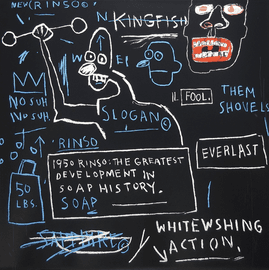 NEW (RINSO©
N KINGFISH
W E
NO SUH
NO SUH
SLOGAN©
II. FOOL.
THEM
SHOVELS
RINSO
1950 RINSO: THE GREATEST
DEVELOPMENT IN
SOAP HISTORY.
SOAP
EVERLAST
50
LBS.
WHITEWSHING
ACTION.